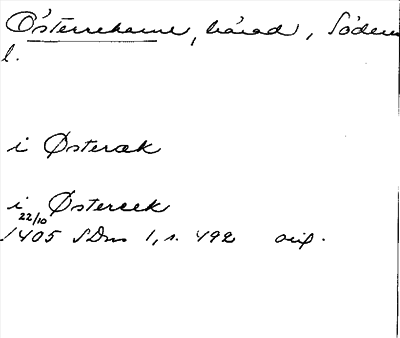 Österrekarne, härad, Söderm
l.
i Østeræk
i Østereek
22/10
1405 SDns 1, s. 492 orig.